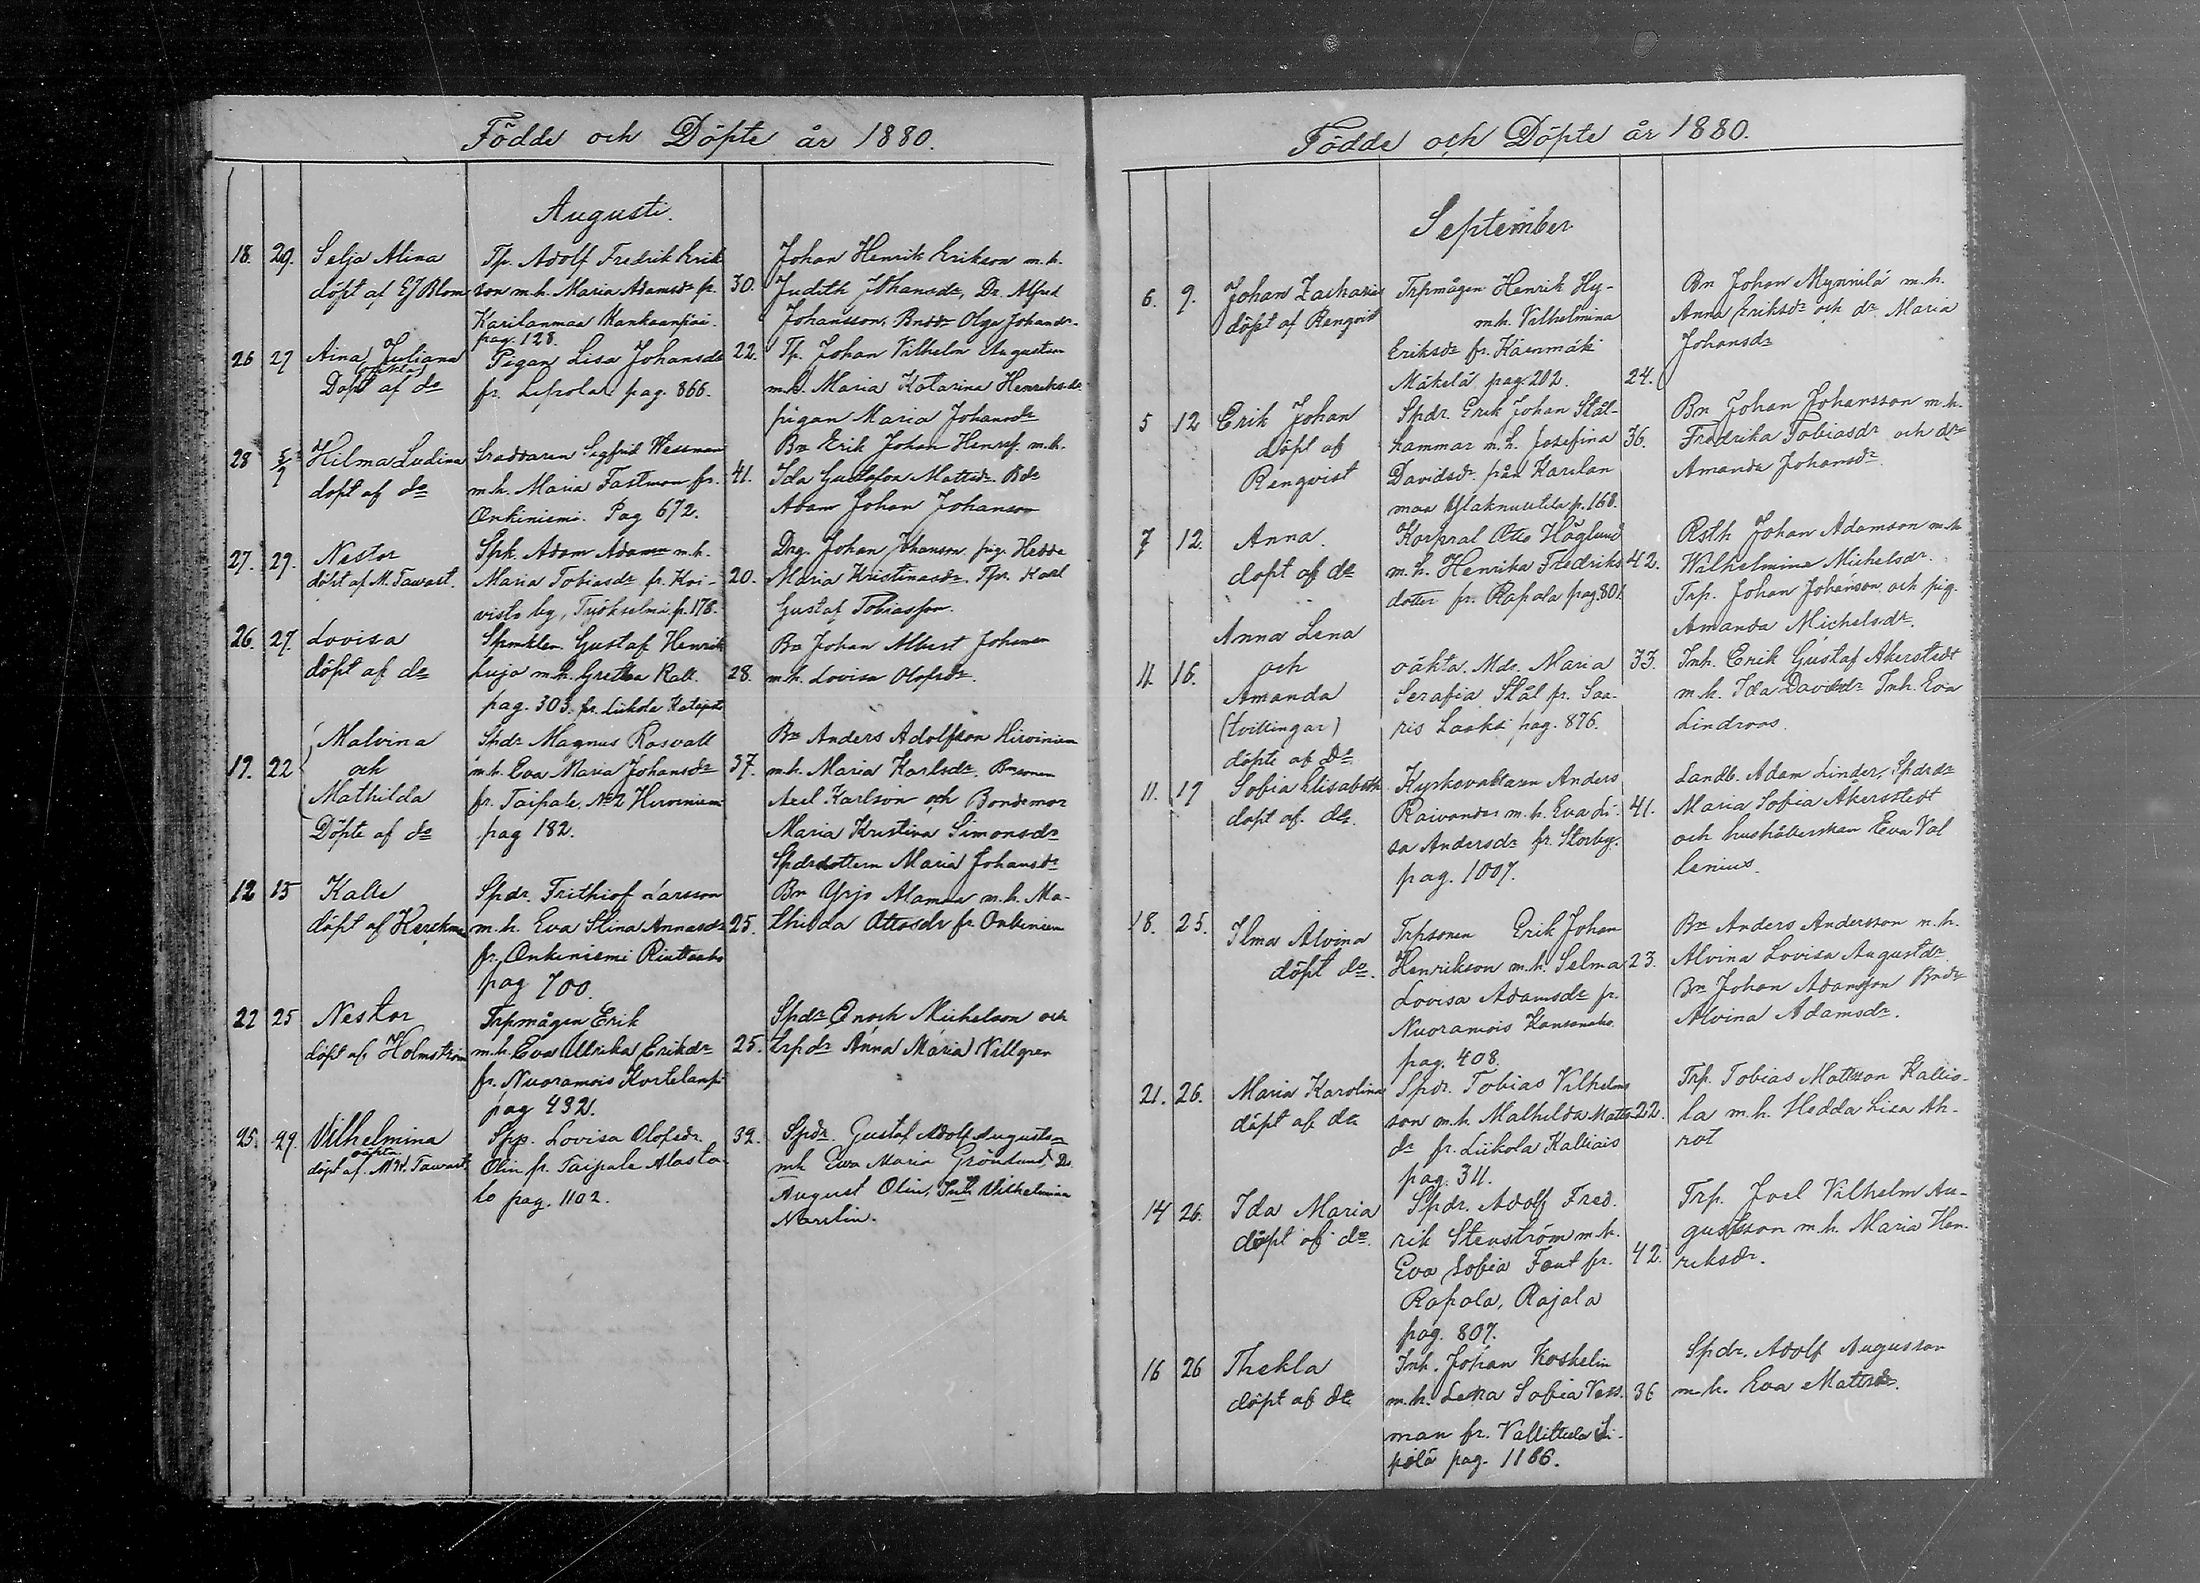 Födde och Döpte år 1880.
Augusti.
18. 29. Selja Alina Tp. Adolf Fredrik Erik Johan Henrik Erikson m.h.
döpt af EJ Blom son m.h. Maria Adamsdr fr. 30. Judith Johansdr, Dr. Alfred
Karilanmaa Kankaanpää. Johansson, Bndr Olga Johansdr.
pag. 128.
26 27 Aina Juliana Pigan Lisa Johansdr 22. Tp. Johan Vilhelm Augustson
(oäkta)
Döpt af do fr. Lepola pag. 866. m.h. Maria Katarina Henriksdr
pigan Maria Johansdr
28 5/9 Hilma Ludina Sigfrid Wessman Bn Erik Johan Henrs. m.h.
döpt af do m.h. Maria Fastmon fr. 41. Ida Gustafva Matsdr. Bdr
Onkiniemi. Pag 672. Adam Johan Johanson
27. 29. Nestor Spk. Adam Adamson m.h. Drg. Johan Johanson pig. Hedda
döpt af M. Tawast. Maria Tobiasdr fr. Koi- 20. Maria Kristinasdr. Tpr. Karl
visto by, Tyskselmi p. 178. Gustaf Tobiasson.
26. 27. Lovisa Gustaf Henrik Bn Johan Albert Johanson
döpt af do m.h. Gretha Rall 28. m.h. Lovisa Olofsdr.
pag. 303. fr. Liikola
Malvina Spdr Magnus Rosvall Bn Anders Adolfson Hirviniemi
19. 22 och m.h. Eva Maria Johansdr 37. m.h. Maria Karlsdr. Bnsonen
Mathilda fr. Taipale, No 2 Hirviniemi Axel Karlson och Bondemor
Döpte af do pag 182. Maria Kristina Simonsdr
Spdrdottern Maria Johansdr
12 15 Kalle Spdr. Frithiof Larsson Bn Yrjö Alamaa m.h. Ma-
döpt af m.h. Eva Stina Annasdr 25. thilda Ottosdr fr. Onkiniemi
fr. Onkiniemi
pag 700.
22 25 Nestor Trpmågen Erik Spdr Enoch Michelson och
döpt af Holmström m.h. Eva Ulrika Eriksdr 25. trpdr Anna Maria Villgren
fr. Nuoramois Kortelampi
pag 432.
25. 29. Vilhelmina Spp. Lovisa Olofsdr. 32. Spdr. Gustaf Adolf Augustson
oäkta
döpt af. M.K. Tawast. Olin fr. Taipale Alasta- m.h. Eva Maria Grönlund, Dr.
lo pag. 1102. August Olin, Inh. Vilhelmina
Födde och Döpte år 1880.
September
6. 9. Johan Zacharias Trpmågen Henrik Hy- Bn Johan Mynnilä m.h.
döpt af Renqvist m.h. Vilhelmina Anna Eriksdr och dr Maria
Eriksdr fr. Kämmäki Johansdr
Mäkelä pag. 202. 24.
5 12 Erik Johan Spdr. Erik Johan Stål- Bn Johan Johansson m.h.
döpt af hammar m.h. Josefina 36. Fredrika Tobiasdr och dr
Renqvist Davidsdr. från Karilan Amanda Johansdr.
maa Yläknuutila p. 168.
7 12. Anna. Korpral Otto Höglund Rsth Johan Adamson m.h
döpt af do m.h. Henrika Fredriks 42. Wilhelmina Michelsdr.
dotter fr. Rapala pag. 801. Trp. Johan Johanson, och pig.
Amanda Michelsdr.
Anna Lena
11. 16. och oäkta. Mdr. Maria 33. Inh. Erik Gustaf Åkerstedt
Amanda Serafia Stål fr. Saa- m.h. Ida Davidsdr Inh. Eva
(tvillingar) ris Laaksi pag. 876. Lindroos.
döpte af Do.
11. 17 Sofia Elisabeth Kyrkovaktaren Anders Landb. Adam Linder, Spdrdr
döpt af. do. Raivander m.h. Eva Li- 41. Maria Sofia Åkerstedt
sa Andersdr fr. Storby. och hushållerskan Eva Val
pag. 1007. lenius.
18. 25. Ilma Alvina Trpsonen Erik Johan Bn Anders Andersson m.h.
döpt do. Henrikson m.h. Selma 23. Alvina Lovisa Augustdr.
Lovisa Adamsdr fr. Bn Johan Adamsson Bndr
Nuoramois Kansanaho. Alvina Adamsdr.
pag. 408.
21. 26. Maria Karolina Spdr. Tobias Vilhelms Trp. Tobias Mattsson Kallio-
döpt af do son m.h. Mathilda Matts 22. la m.h. Hedda Lisa Ah-
dr fr. Liikola Kalliais rot
pag. 311.
14 26. Ida Maria Spdr. Adolf Fred. Trp. Joel Vilhelm Au-
döpt af do. rik Stenström m.h. gustsson m.h. Maria Hen-
Eva Sofia Fant fr. 42. riksdr.
Rapala, Rajala
pag. 807.
16 26 Thekla Inh. Johan Koskelin Spdr. Adolf Augusson
döpt af do m.h. Lena Sofia Vess- 36 m.h. Eva Mattsdr.
man fr. Vallittula Si-
pilä pag. 1166.